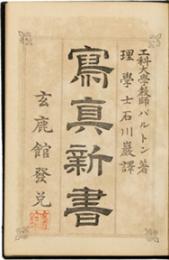 工科大學教師バルトン著
理學士石川巖譯
寫真新書
玄鹿館發兌